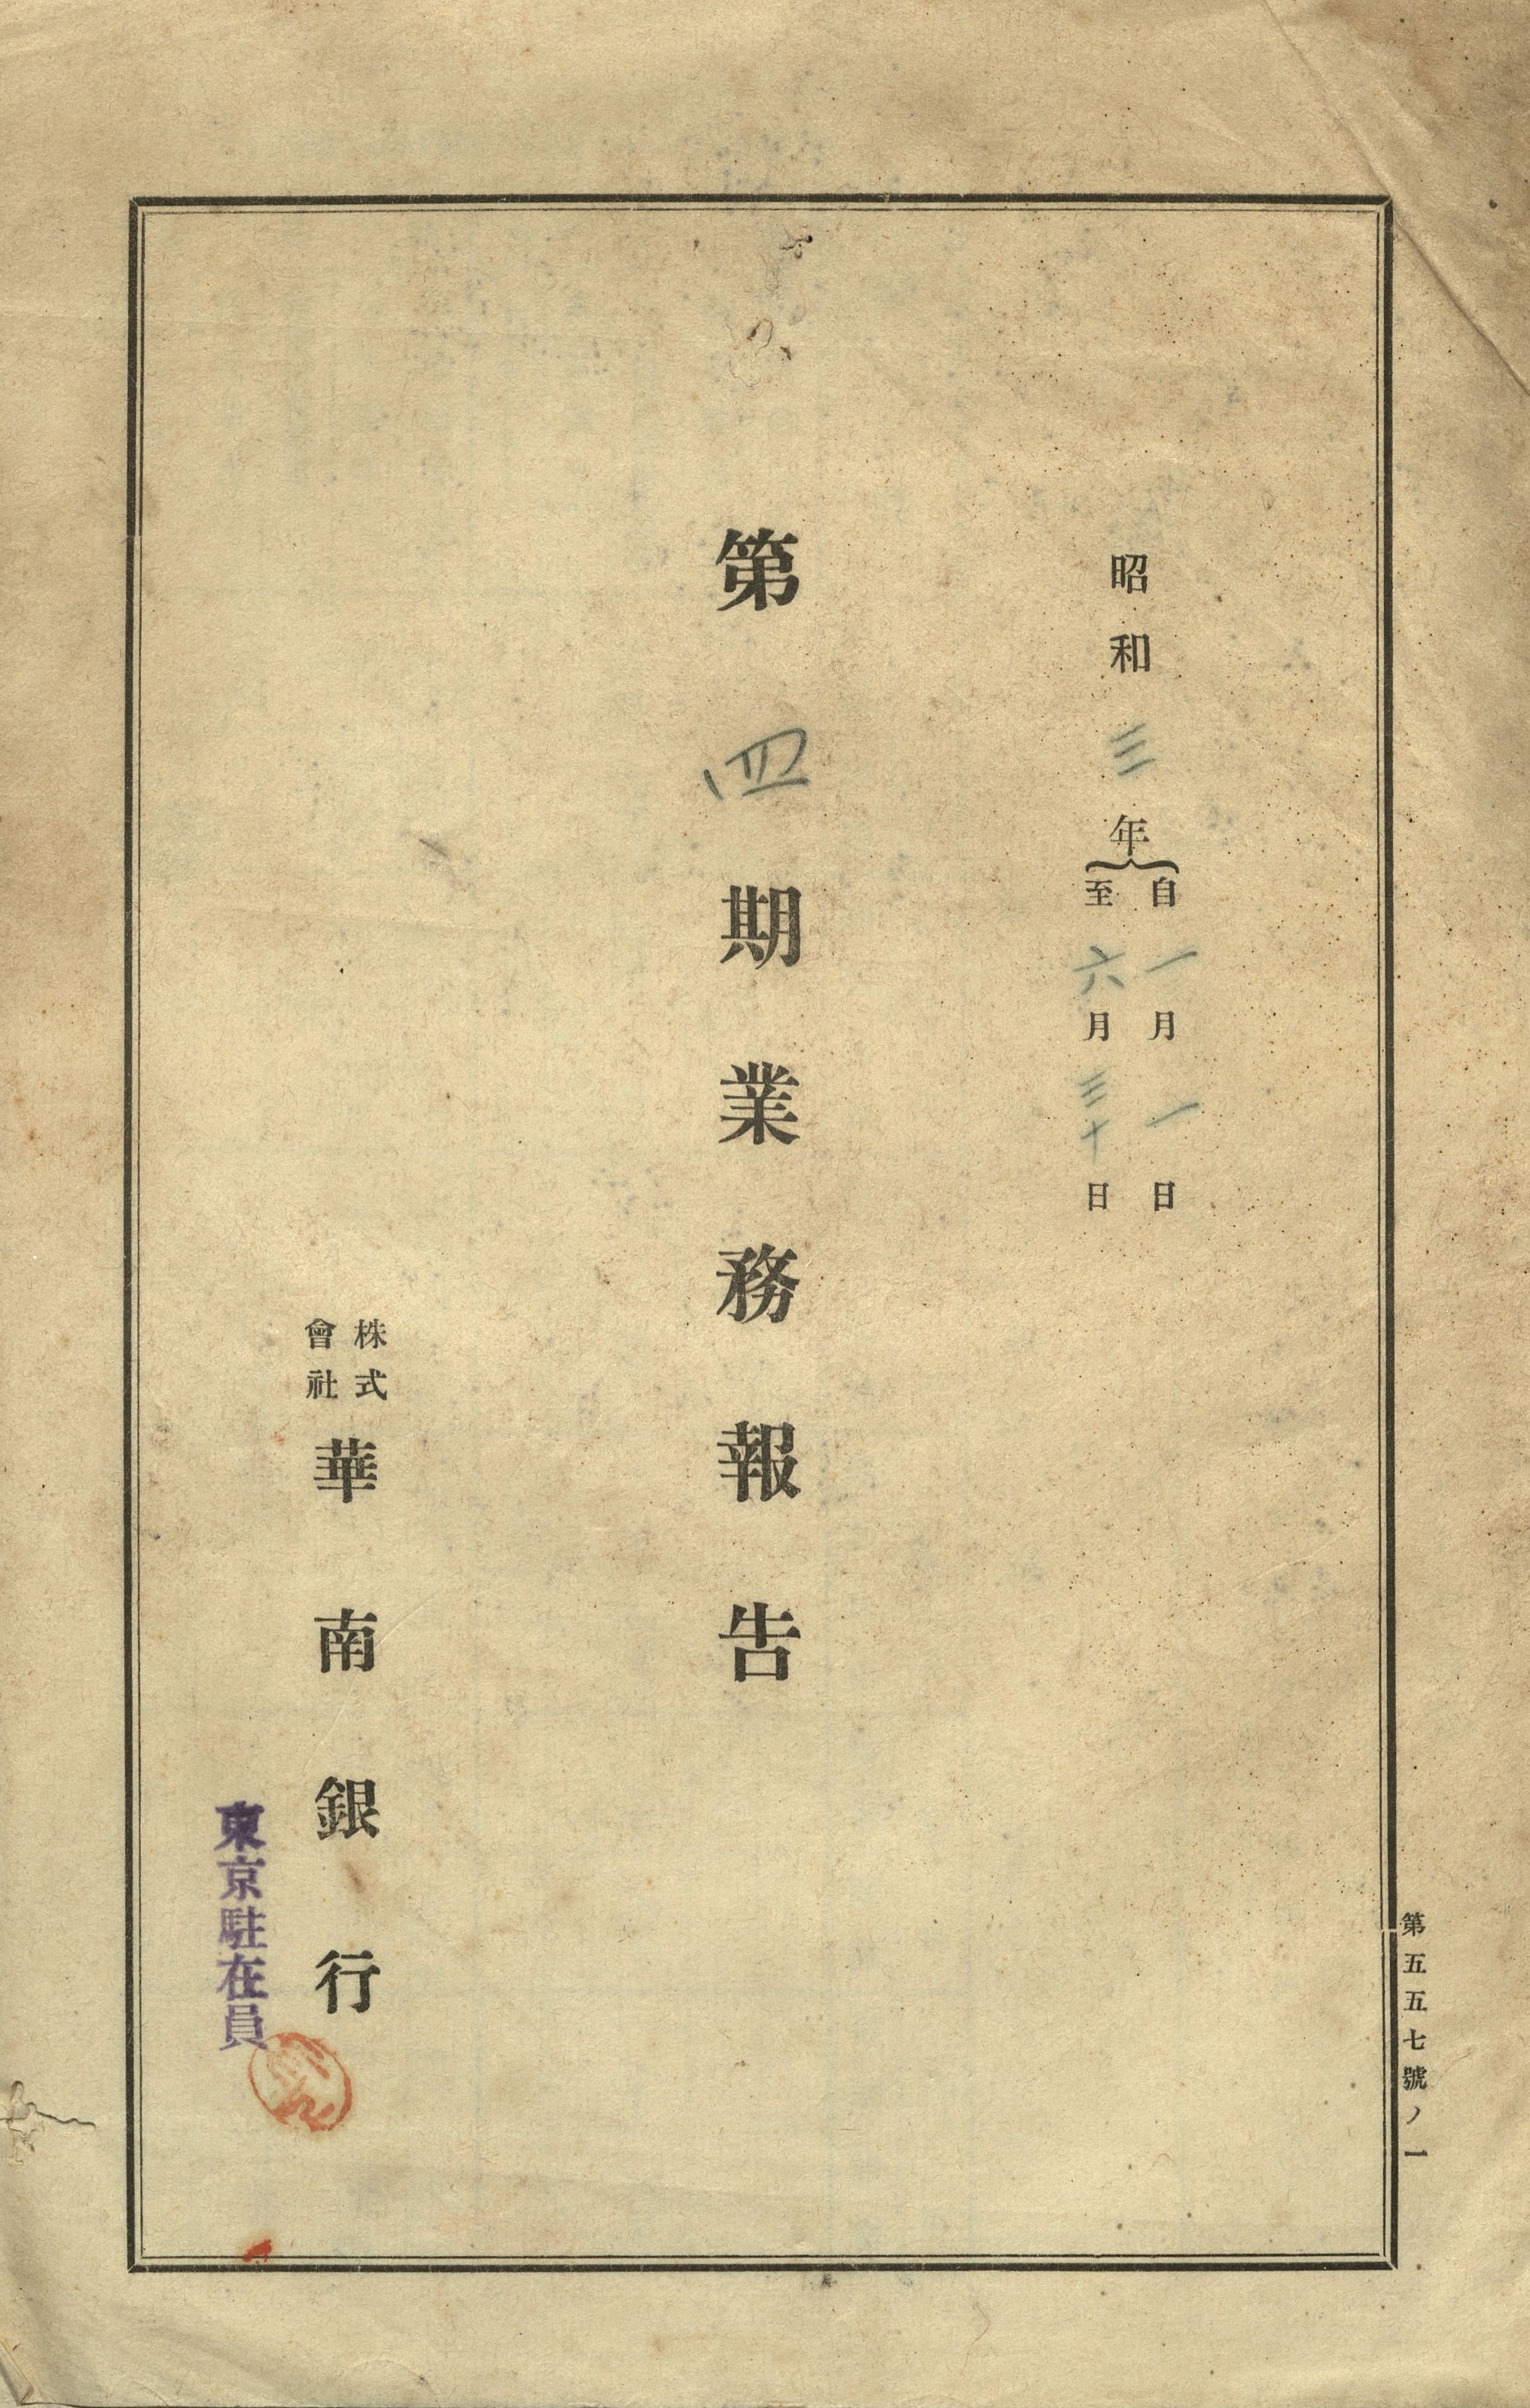 昭和三年
自一月一日
至六月三十日
第四期業務報告
株式
會社
華南銀行
東京駐在員
第五五七號ノ一